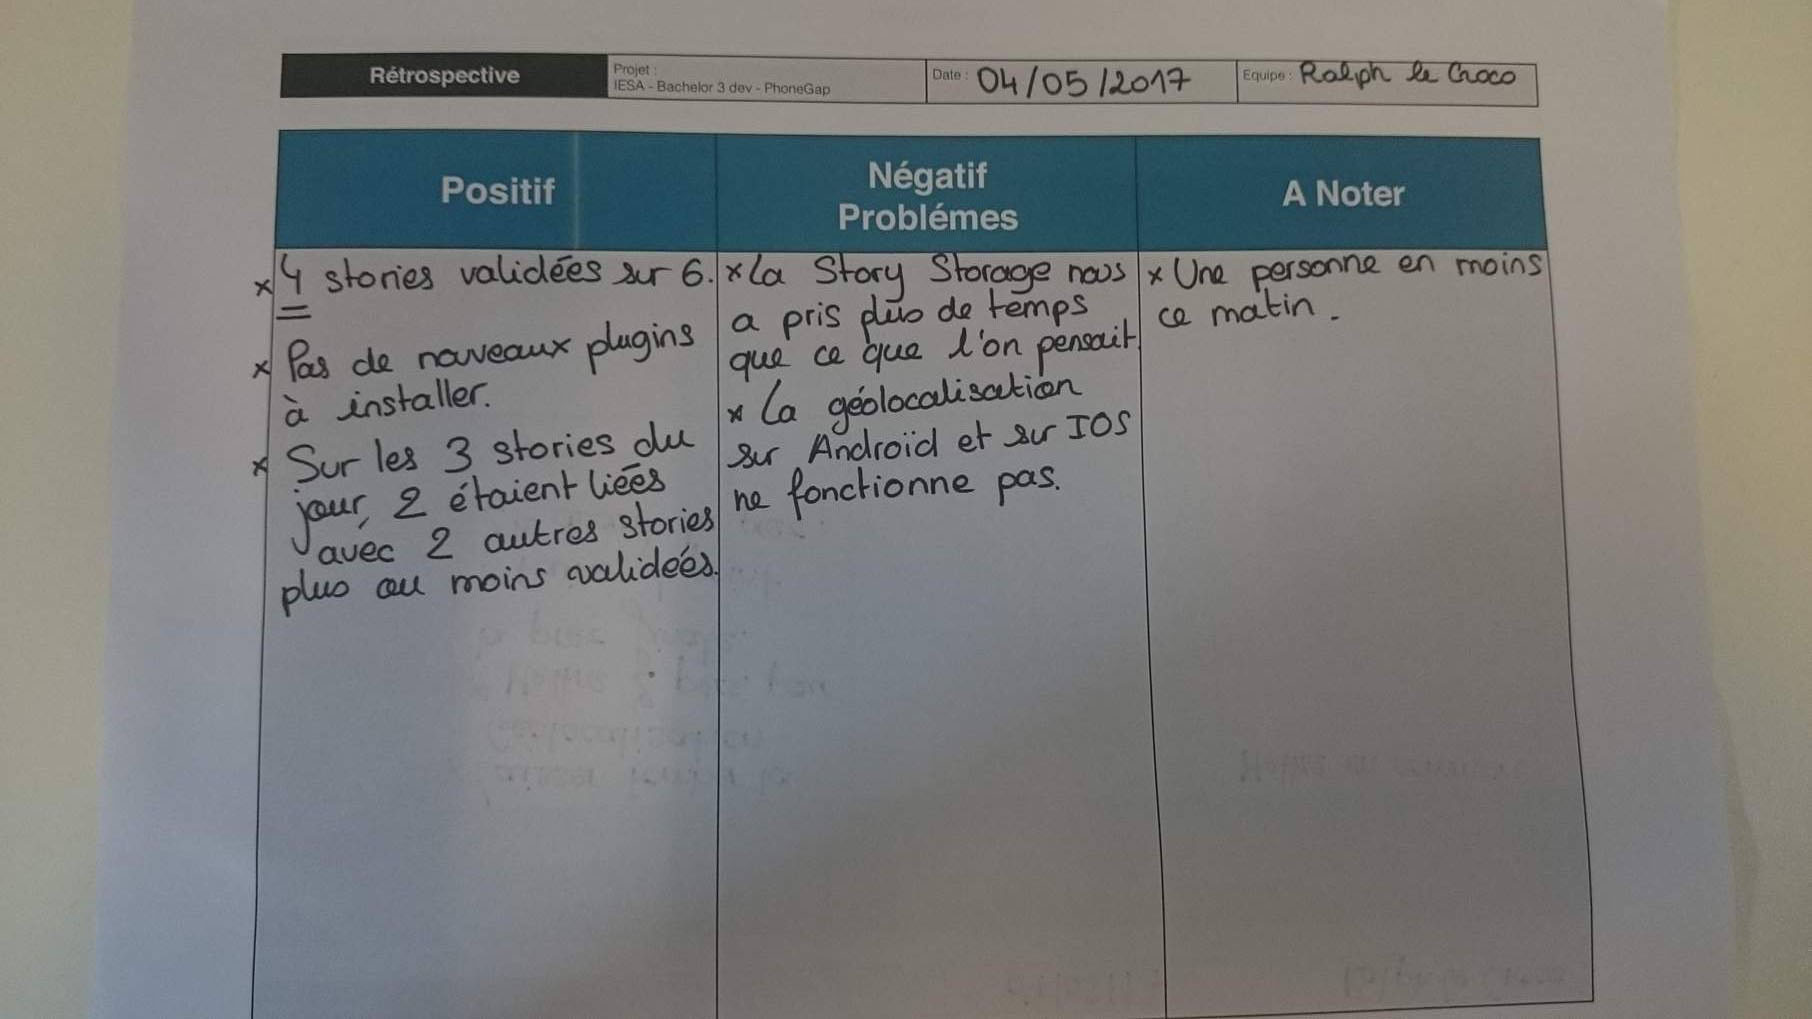 Rétrospective
Projet :
IESA - Bachelor 3 dev - PhoneGap
Date : 04/05/2017
Equipe : Ralph le Croco
Positif
Négatif
Problémes
A Noter
x 4 stories validées sur 6.
x Pas de nouveaux plugins
à installer.
x Sur les 3 stories du
jour, 2 étaient liées
avec 2 autres stories
plus ou moins validées.
x La Story Storage nous
a pris plus de temps
que ce que l'on pensait.
x La géolocalisation
sur Androïd et sur IOS
ne fonctionne pas.
x Une personne en moins
ce matin.